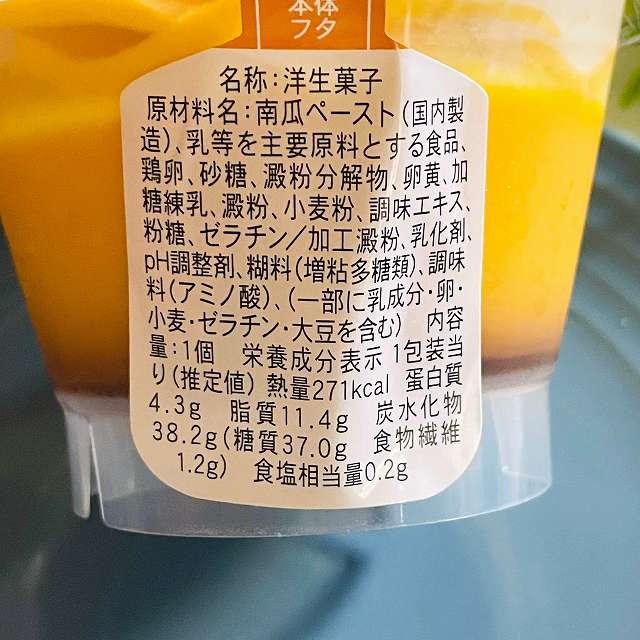 本体
フタ
名称:洋生菓子
原材料名:南瓜ペースト(国内製
造)、乳等を主要原料とする食品、
鶏卵、砂糖、澱粉分解物、卵黄、加
糖練乳、澱粉、小麦粉、調味エキス、
粉糖、ゼラチン/加工澱粉、乳化剤、
pH調整剤、糊料(増粘多糖類)、調味
料(アミノ酸)、(一部に乳成分・卵・
小麦・ゼラチン・大豆を含む) 内容
量:1個 栄養成分表示 1包装当
り(推定値) 熱量271kcal 蛋白質
4.3g 脂質11.4g 炭水化物
38.2g(糖質37.0g 食物繊維
1.2g) 食塩相当量0.2g